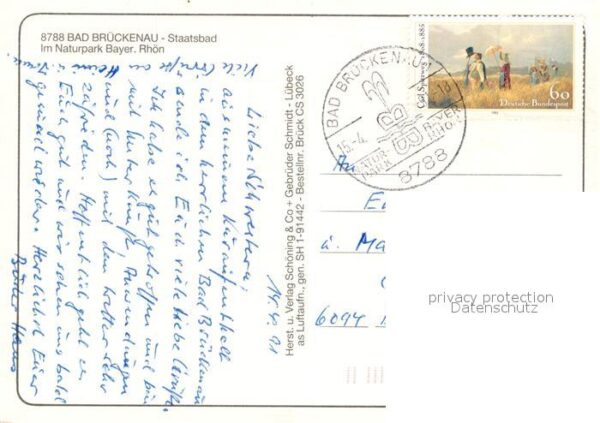 8788 BAD BRÜCKENAU - Staatsbad
Im Naturpark Bayer. Rhön
14.4.91
Liebe Schwestern,
aus meinem Kuraufenthalt
in dem herrlichen Bad Brückenau
sende ich Euch viele liebe Grüße.
Ich habe es gut getroffen und bin
mit Unterkunft, Anwendungen
und (noch) mit dem Wetter sehr
zufrieden. Hoffentlich geht es
Euch gut und wir sehen uns bald
gesund wieder. Herzlichst Euer
Bruder Hans
Viele
Herst. u. Verlag Schöning & Co + Gebrüder Schmidt - Lübeck
as Luftaufn., gen. SH 1-91442 - Bestellnr. Brück CS 3026
BAD BRÜCKENAU
15.-4.
NATUR-
PARK
BAYER.
RHÖN
8788
Carl Spitzweg 1808-1885
60
Deutsche Bundespost
An
u. Ma
6094
privacy protection
Datenschutz